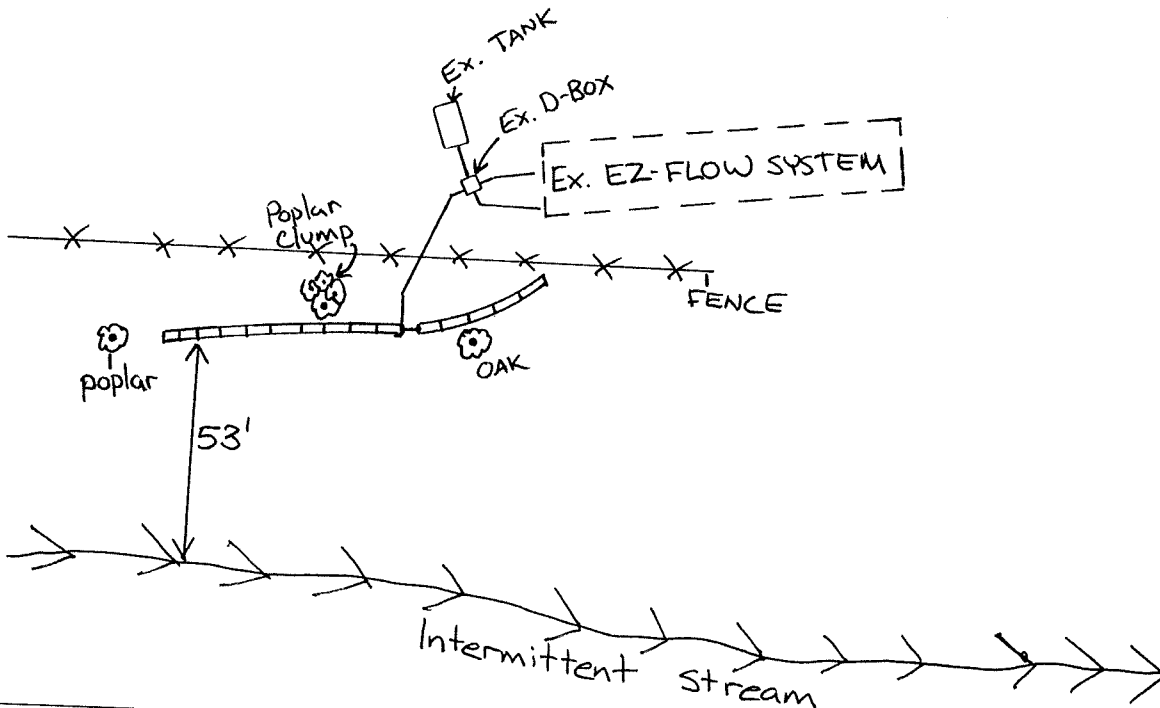 Ex. TANK
Ex. D-BOX
Ex. EZ-FLOW SYSTEM
Poplar
Clump
FENCE
poplar
OAK
53'
Intermittent Stream